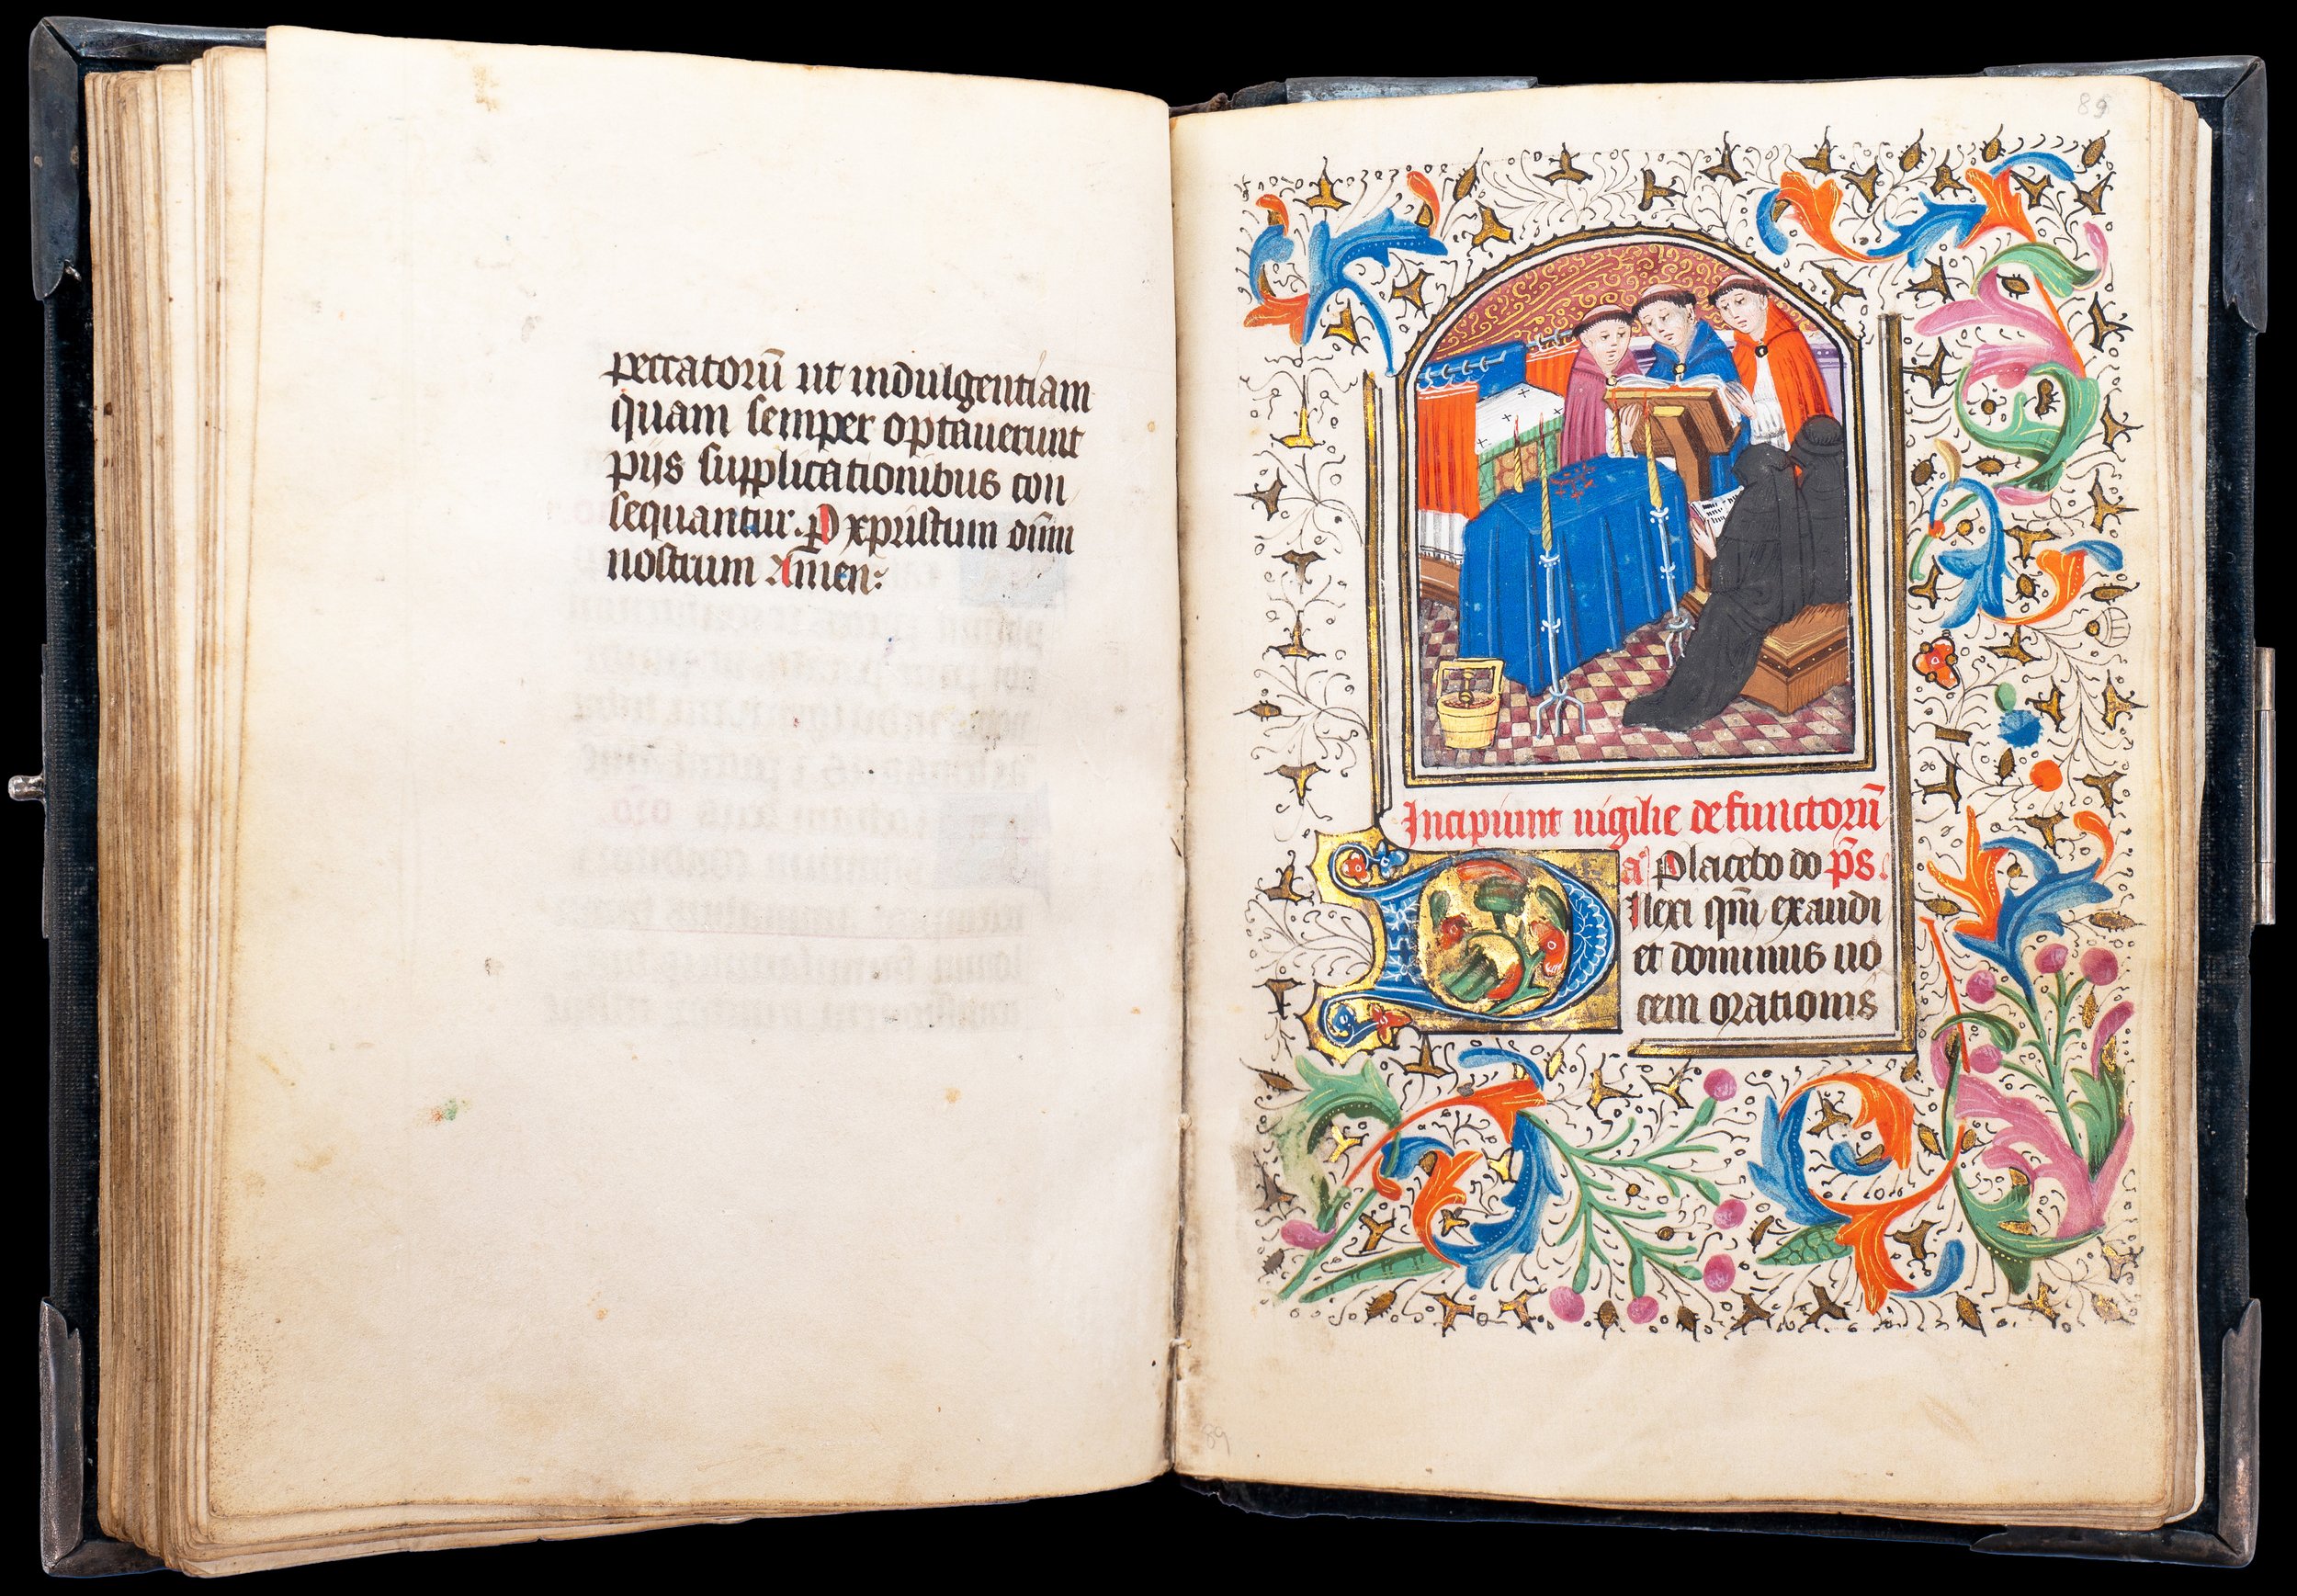 peccatorū ut indulgentiam
quam semper optauerunt
pijs supplicationibus con
sequantur. P xpristum dn̄m
nostrum Amen:
89
Incipiunt uigilie defunctorū
a Placebo do p̄s.
Dilexi qm̄ exaudi
et dominus uo
cem orationis
89